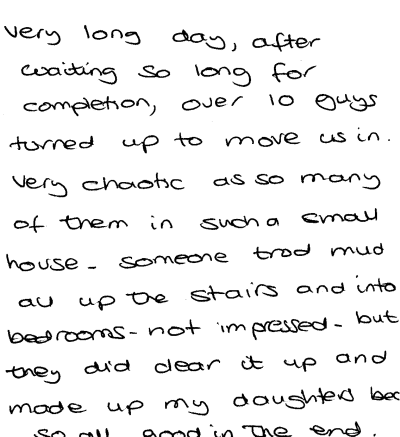 very long day, after
waiting so long for
completion, over 10 guys
turned up to move us in.
Very chaotic as so many
of them in such a small
house - someone trod mud
all up the stairs and into
bedrooms - not impressed - but
they did clear it up and
made up my daughters bed
so all good in the end.